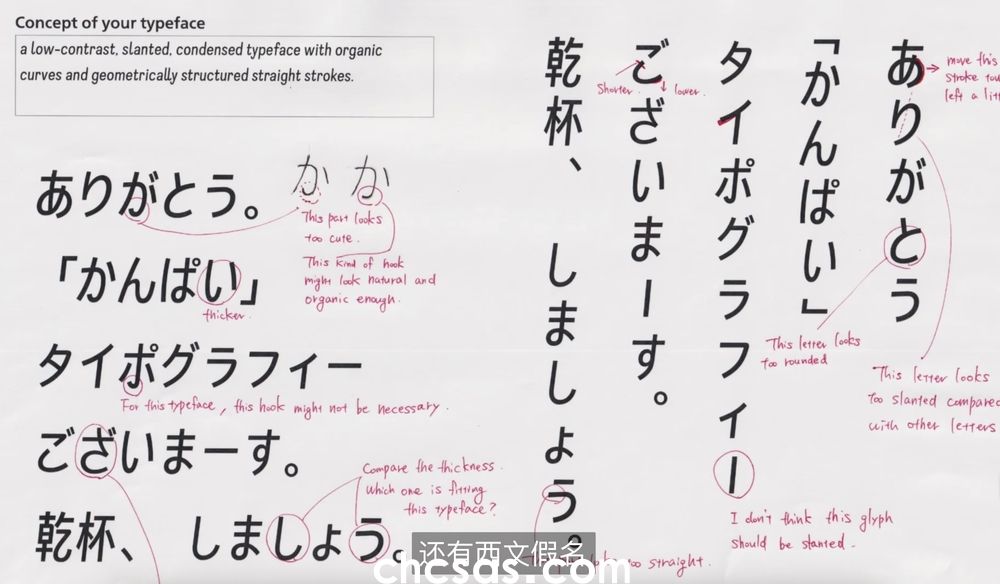 Concept of your typeface
a low-contrast, slanted, condensed typeface with organic
curves and geometrically structured straight strokes.
ありがとう。
か か
This part looks
too cute.
This kind of hook
might look natural and
organic enough.
「かんぱい」
thicker.
タイポグラフィー
For this typeface, this hook might not be necessary.
ございまーす。
Compare the thickness.
Which one is fitting
this typeface?
乾杯、 しましょう。
ありがとう
move this
stroke
left a
「かんぱい」
This letter looks
too rounded
This letter looks
too slanted compared
with other letters
タイポグラフィー
I don't think this glyph
should be slanted.
ございまーす。
Shorter.
lower.
乾杯、 しましょう。
too straight.
还有西文假名
chcsds.com